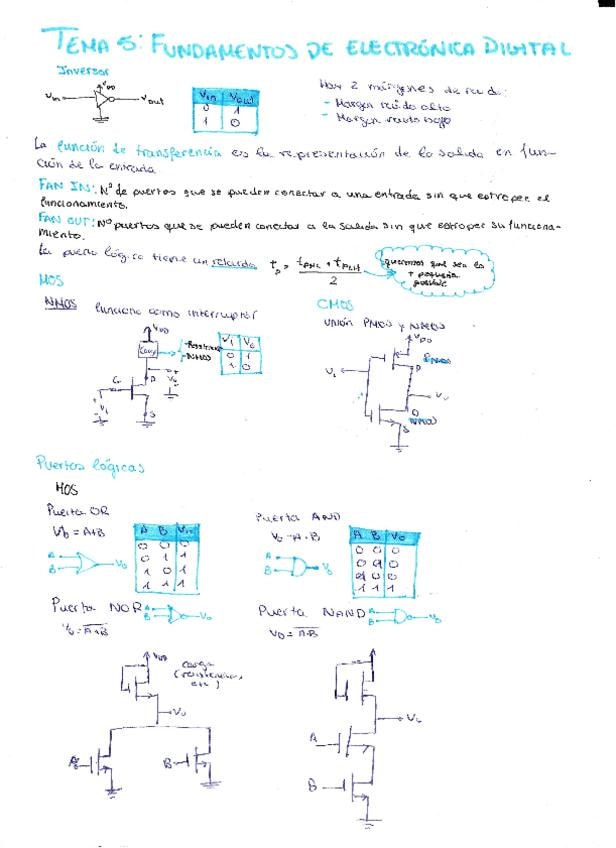 TEMA 5: FUNDAMENTOS DE ELECTRÓNICA DIGITAL
Inversor
VDD
Vin
Vout
Vin Vout
0 1
1 0
Hay 2 márgenes de ruido:
- Margen ruido alto
- Margen ruido bajo
La función de transferencia es la representación de la salida en fun-
ción de la entrada
FAN IN: Nº de puertos que se pueden conectar a una entrada sin que estropee el
funcionamiento.
FAN OUT: Nº puertos que se pueden conectar a la salida sin que estropee su funciona-
miento.
La puerta lógica tiene un retardo tp = (tPHL + tPLH) / 2
queremos que sea lo
+ pequeño
posible
MOS
NMOS funciona como interruptor
VDD
Carga
- Resistencia
- NMOS
Vi Vo
0 1
1 0
G
D
S
Vi
Vo
CMOS
Unión PMOS y NMOS
VDD
PMOS
Vi
D
Vo
D
NMOS
S
Puertas lógicas
MOS
Puerta OR
Vo = A+B
A
B
Vo
A B Vo
0 0 0
0 1 1
1 0 1
1 1 1
Puerta AND
Vo = A·B
A
B
Vo
A B Vo
0 0 0
0 1 0
1 0 0
1 1 1
Puerta NOR
A
B
Vo
Vo = A+B
Puerta NAND
A
B
Vo
Vo = A·B
VDD
carga
(resistencias,
etc)
Vo
A
B
Vo
A
B